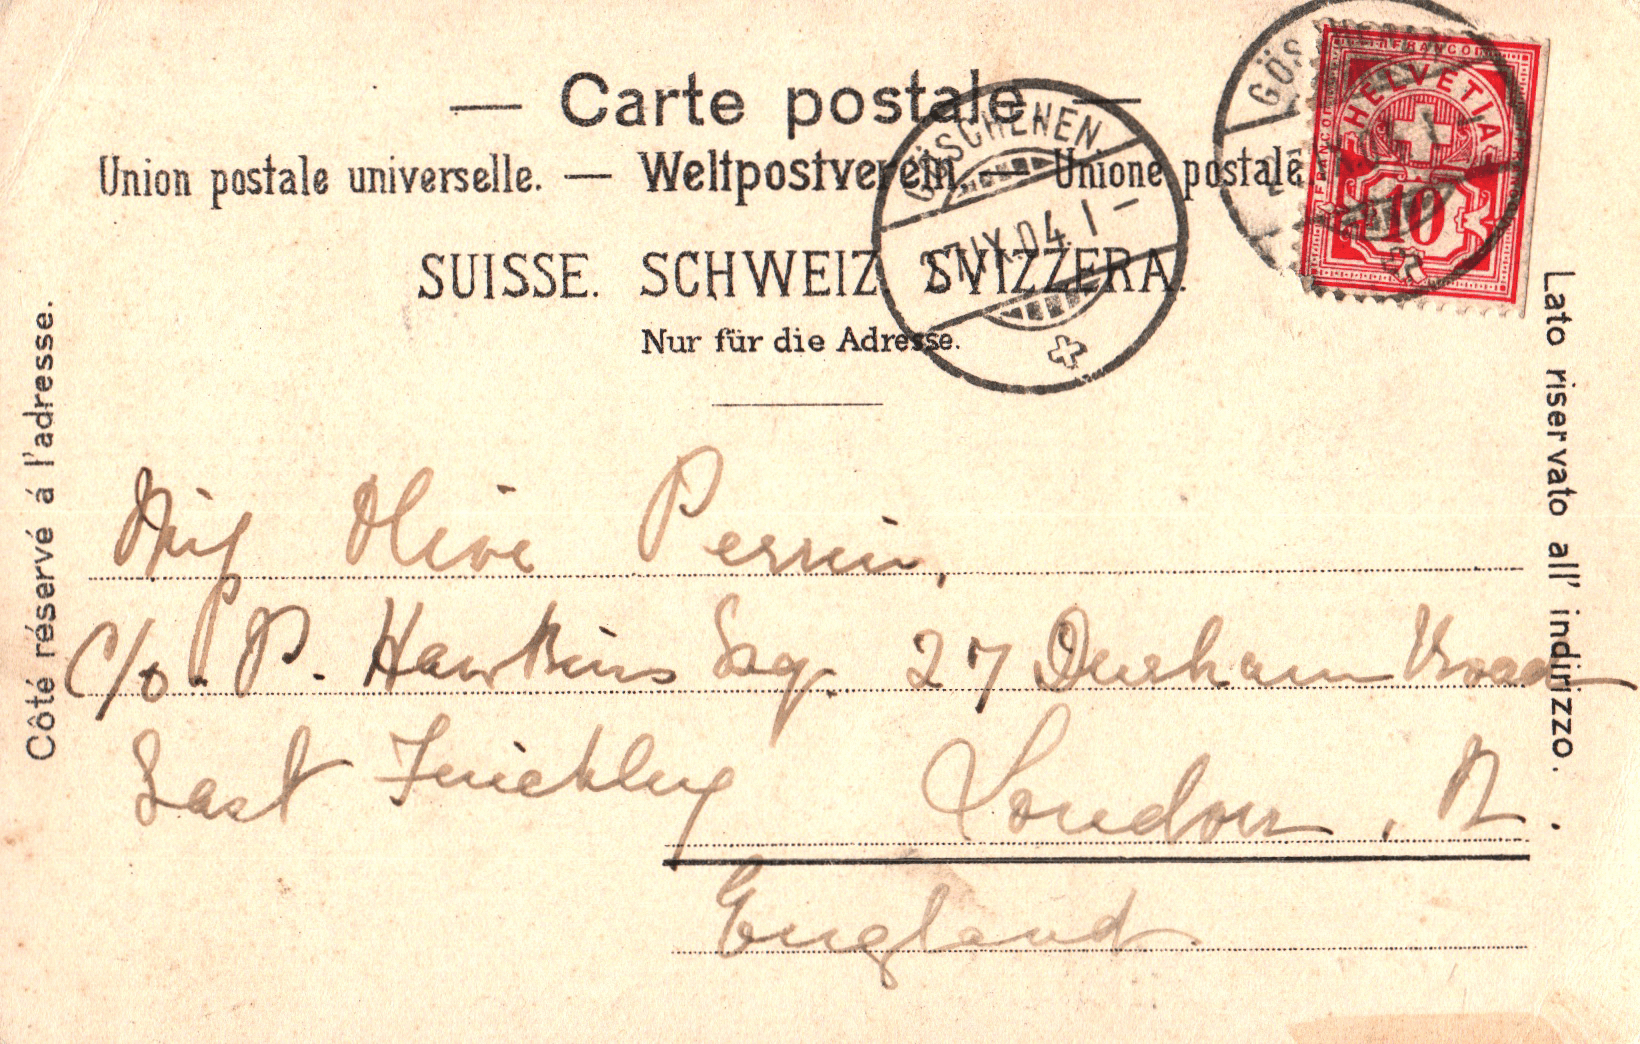 — Carte postale —
Union postale universelle. — Weltpostverein. — Unione postale
SUISSE. SCHWEIZ. SVIZZERA.
Nur für die Adresse.
Côté réservé á l'adresse.
Lato riservato all' indirizzo.
GÖSCHENEN
27.IX.04. I –
FRANCO
HELVETIA
10
Miss Olive Perrin,
c/o. P. Hawkins Esq. 27 Durham Road
East Finchley London, N.
England